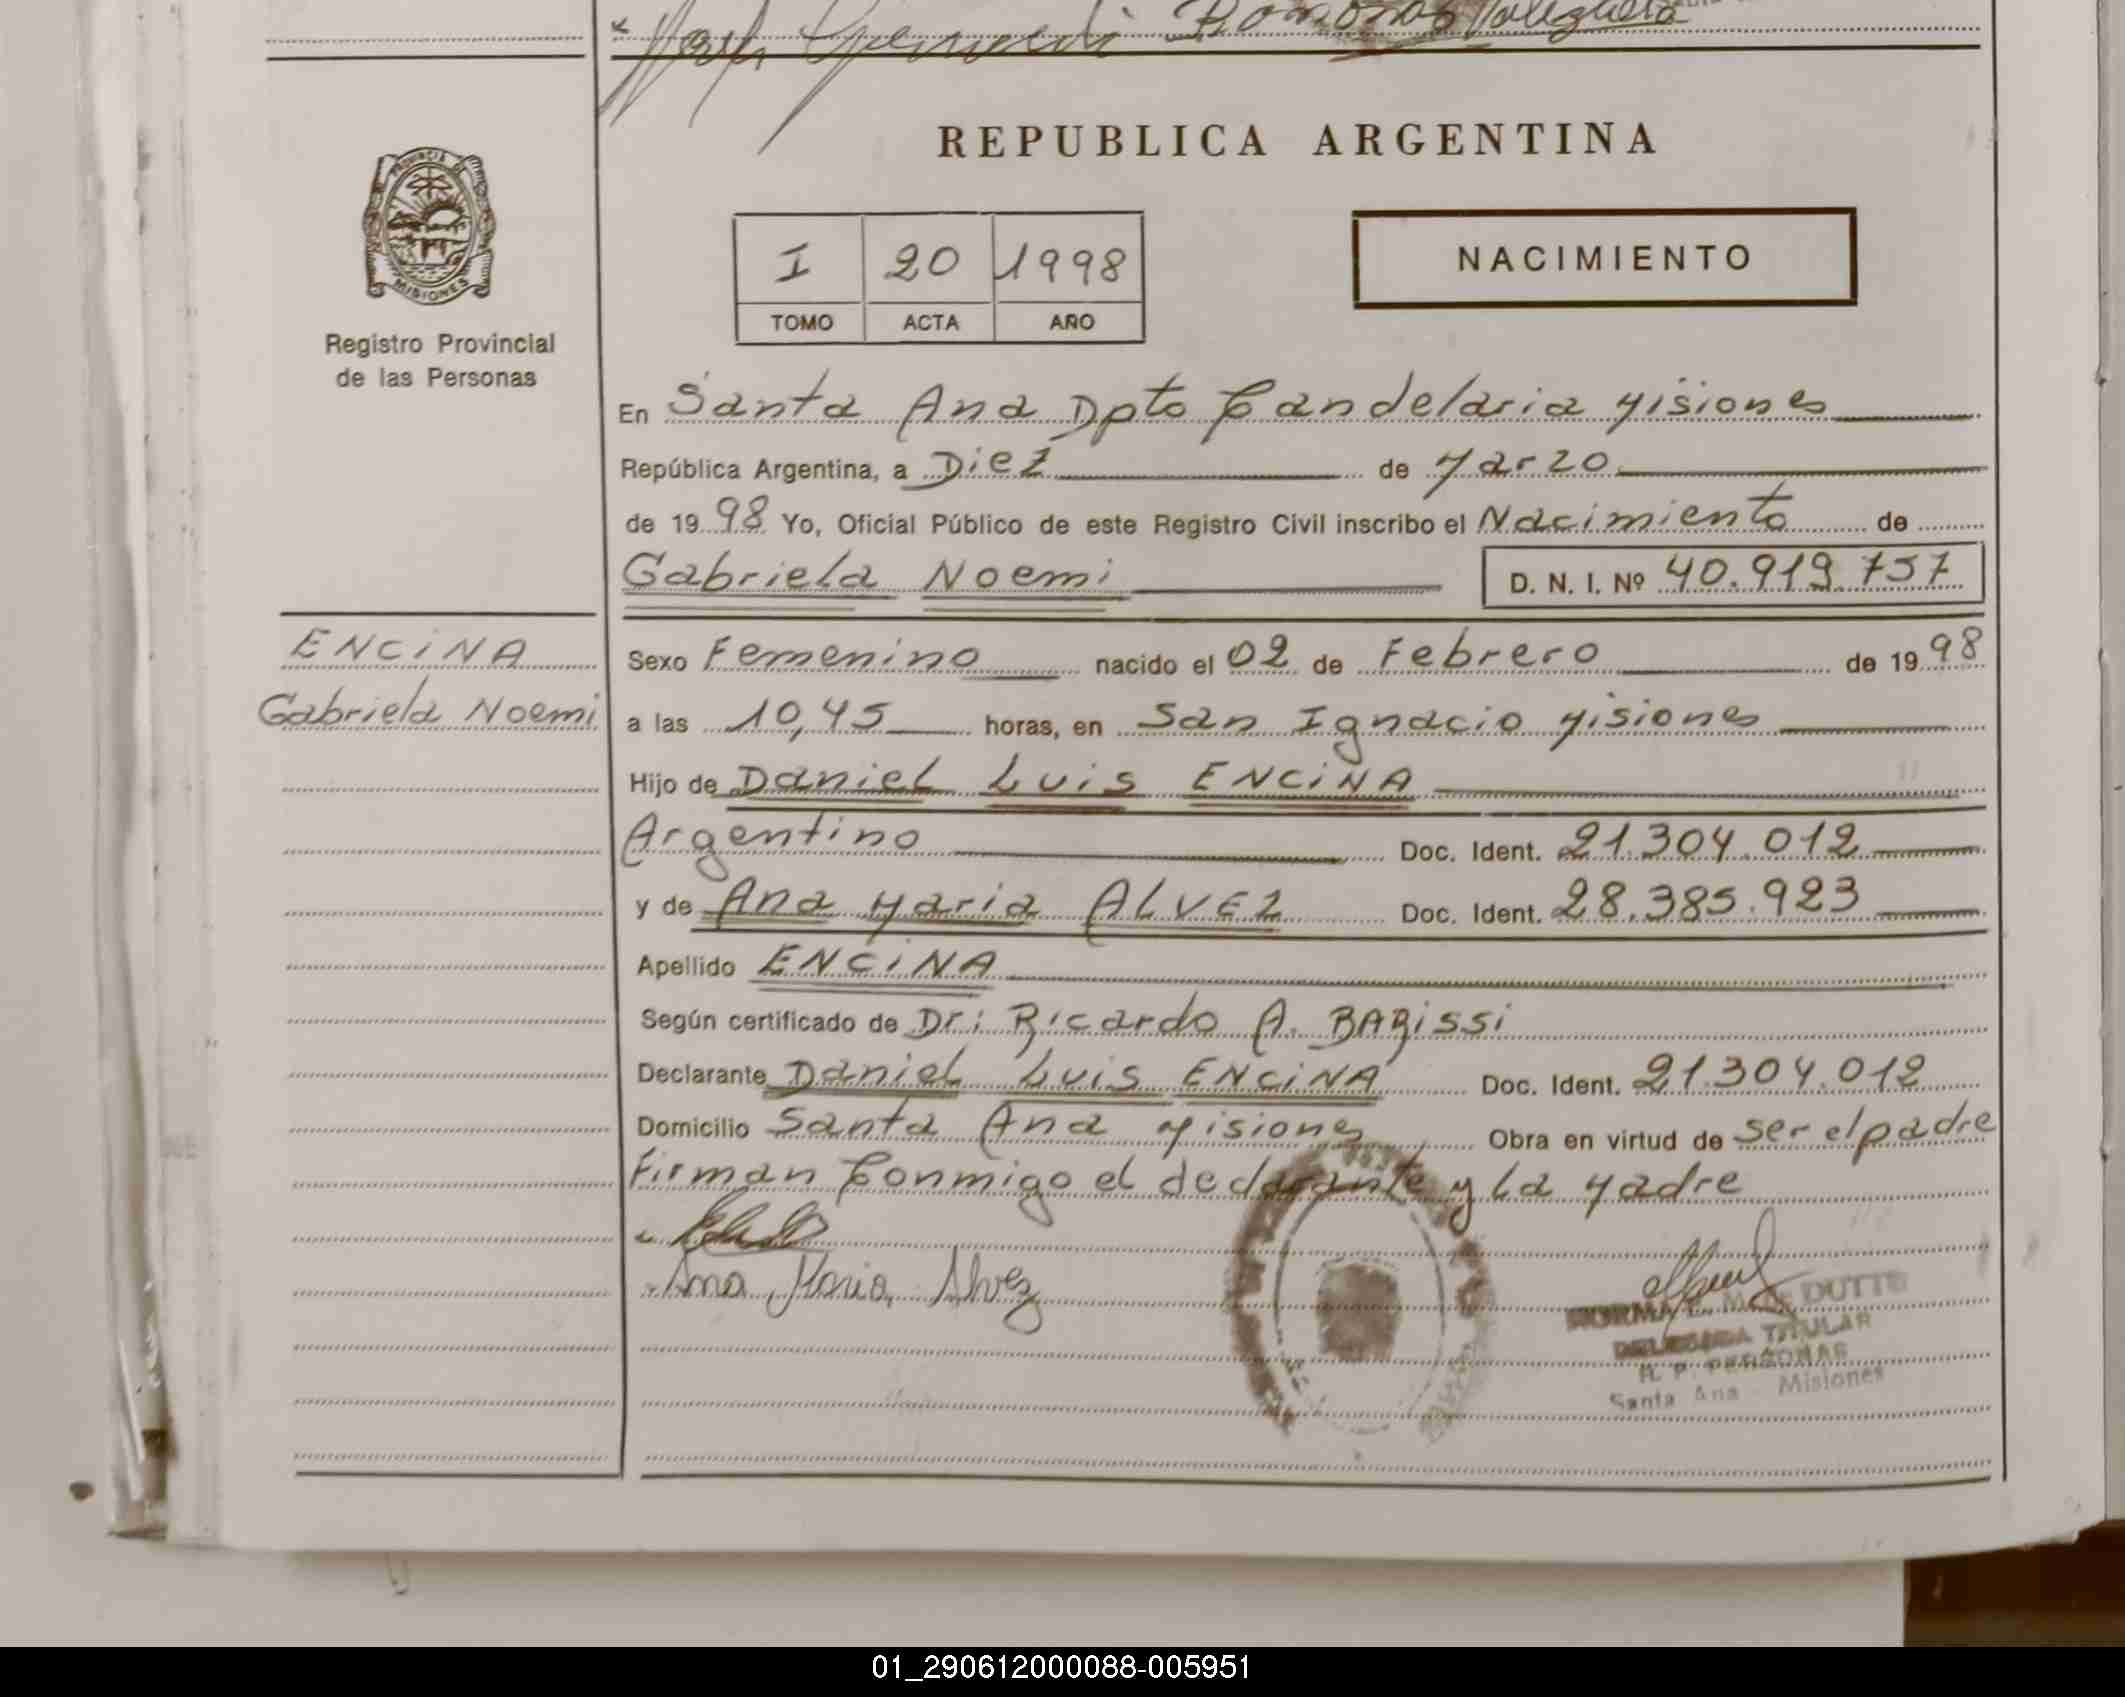 REPUBLICA ARGENTINA
PROVINCIA DE
MISIONES
Registro Provincial
de las Personas
I 20 1998
TOMO ACTA AÑO
NACIMIENTO
En Santa Ana Dpto Candelaria Misiones
República Argentina, a Diez de Marzo
de 1998 Yo, Oficial Público de este Registro Civil inscribo el Nacimiento de
Gabriela Noemi D. N. I. Nº 40.919.757
ENCINA
Gabriela Noemi
Sexo Femenino nacido el 02 de Febrero de 1998
a las 10,45 horas, en San Ignacio Misiones
Hijo de Daniel Luis ENCINA
Argentino Doc. Ident. 21.304.012
y de Ana Maria ALVEZ Doc. Ident. 28.385.923
Apellido ENCINA
Según certificado de Dr: Ricardo A. BARISSI
Declarante Daniel Luis ENCINA Doc. Ident. 21.304.012
Domicilio Santa Ana Misiones Obra en virtud de ser el padre
Firman Conmigo el declarante y La Madre
Ana Maria Alvez
NORMA DUTTO
DELEGADA TITULAR
R. P. PERSONAS
Santa Ana Misiones
01_290612000088-005951